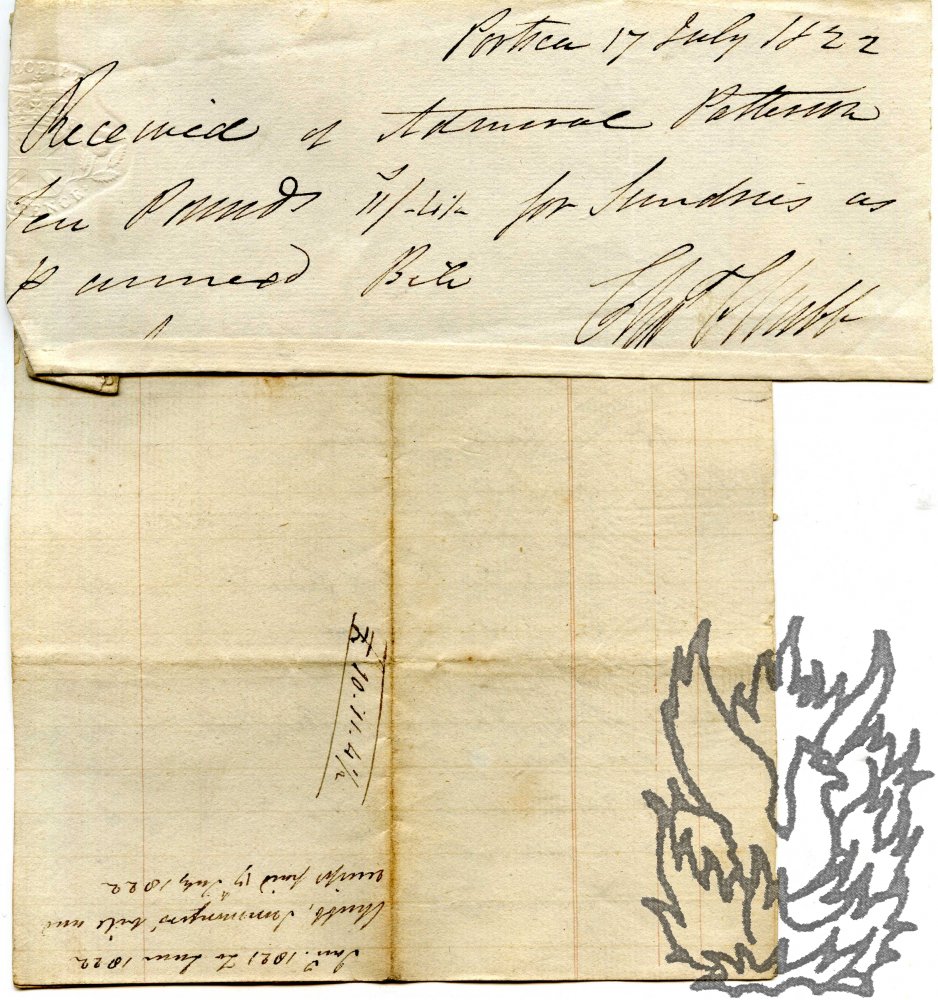 Portsea 17 July 1822
Received of Admiral Patterson
Ten Pounds 11/-4½ for Sundries as
p annexed Bill
Chas Chubb
£10.11.4½
Jany. 1821 to June 1822
Chubb, Ironmongers bill and
receipt paid 17 July 1822